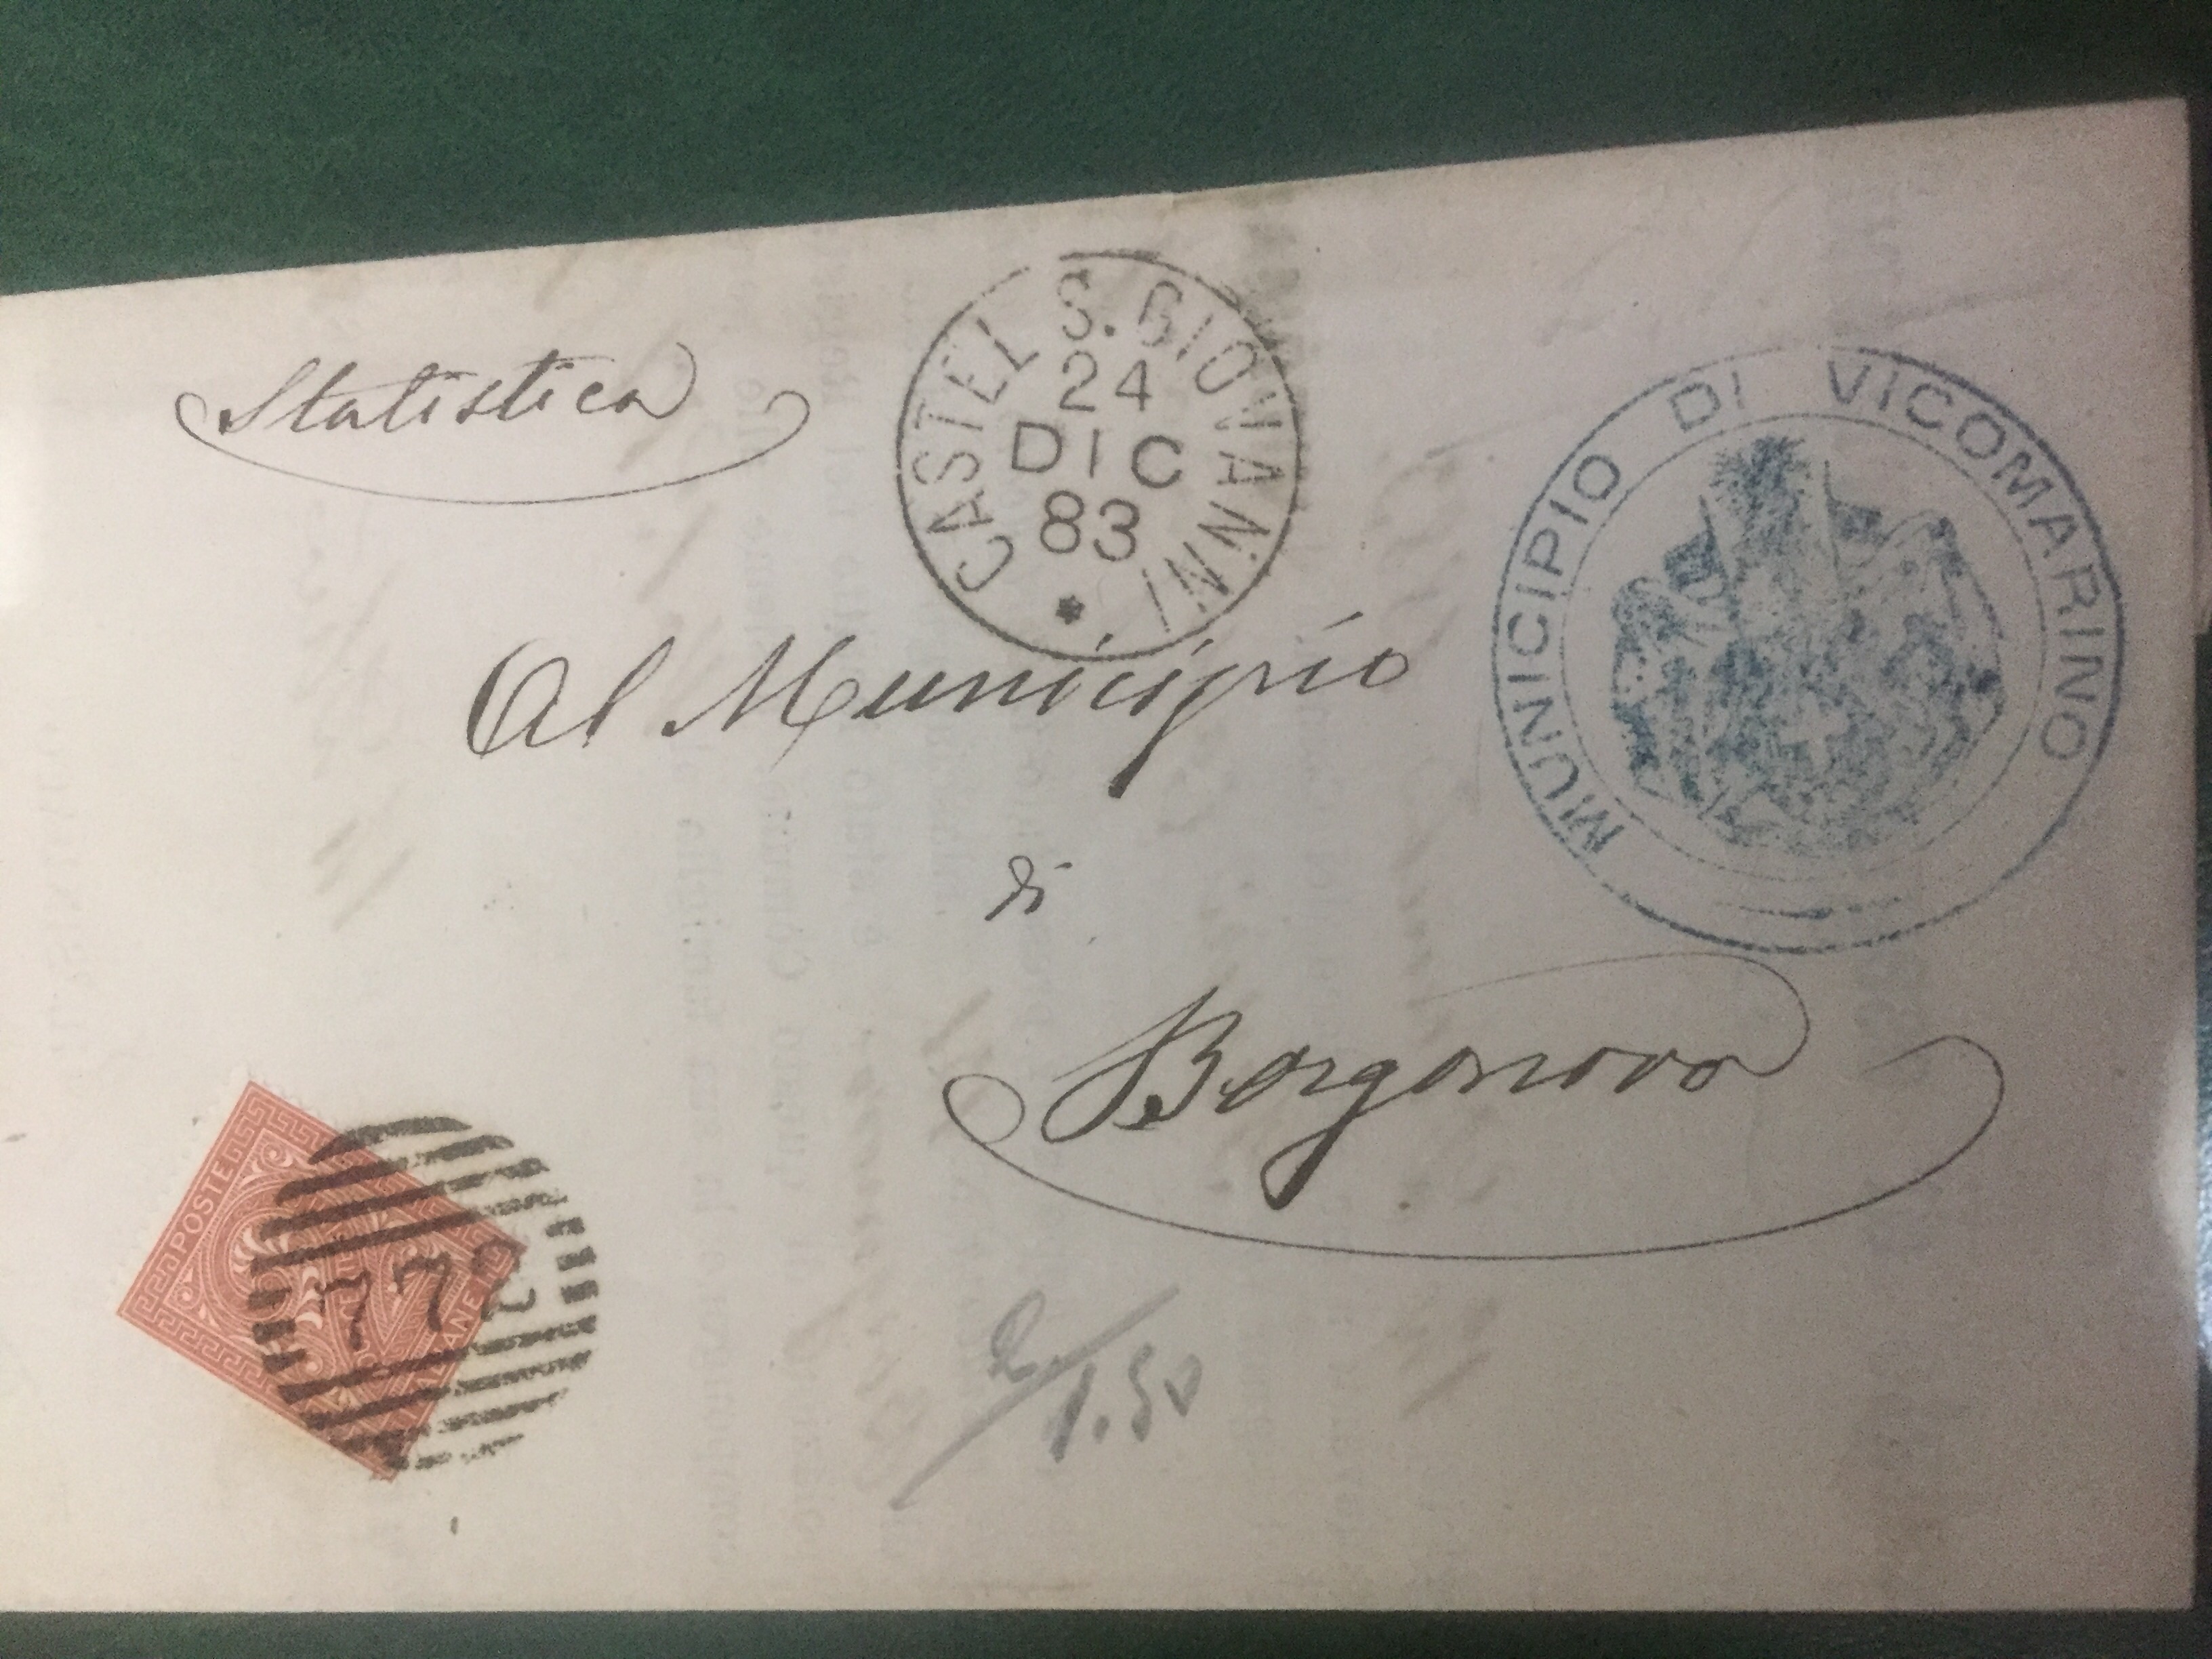 Statistica
CASTEL S. GIOVANNI
24
DIC
83
*
MUNICIPIO DI VICOMARINO
Al Municipio
di
Borgonovo
POSTE
772
2/1.50